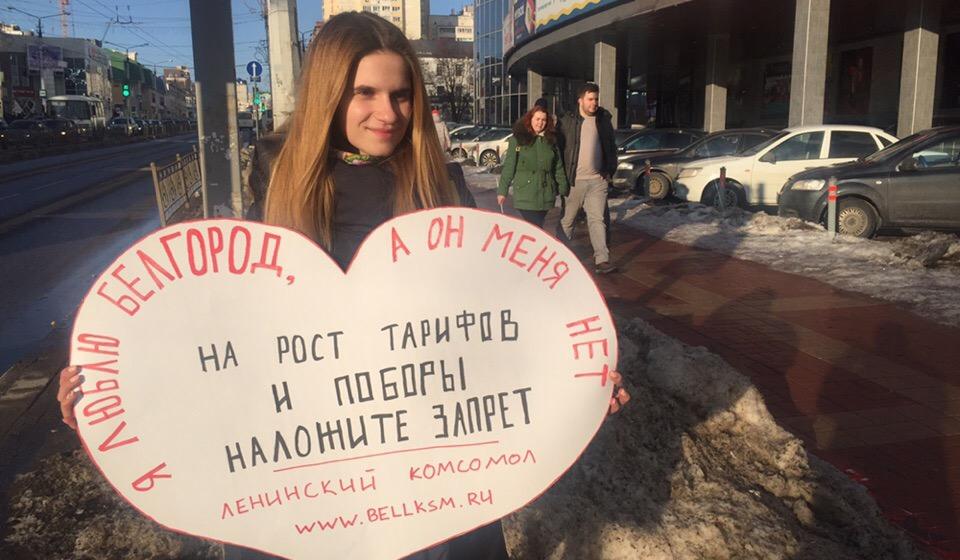 Я ЛЮБЛЮ БЕЛГОРОД, А ОН МЕНЯ НЕТ
НА РОСТ ТАРИФОВ
И ПОБОРЫ
НАЛОЖИТЕ ЗАПРЕТ
ЛЕНИНСКИЙ КОМСОМОЛ
WWW.BELLKSM.RU